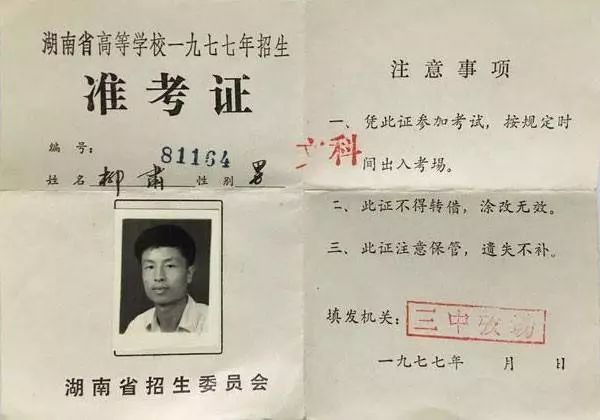 湖南省高等学校一九七七年招生
准考证
编号：81164
姓名 柳肃 性别 男
湖南省招生委员会
文科
注意事项
一、凭此证参加考试，按规定时
间出入考场。
二、此证不得转借，涂改无效。
三、此证注意保管，遗失不补。
填发机关：三中考场
一九七七年 月 日